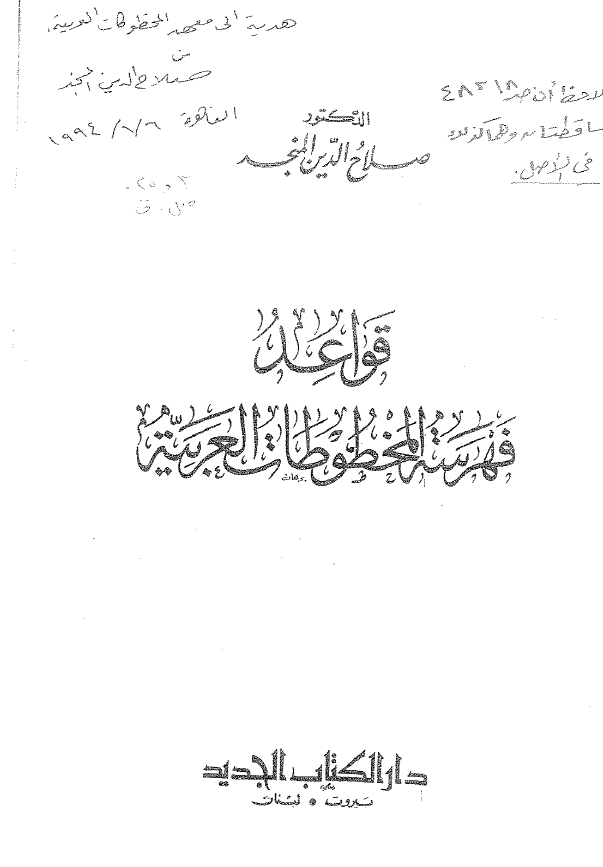 هدية إلى معهد المخطوطات العربية.
من
صلاح الدين المنجد
القاهرة ١٩٩٤/٦/٦
لاحظ أن صـ ١٨ ٤٨٣
ساقطتان وهما كذلك
في الأصل.
الدكتور
صلاح الدّين المنجد
قَواعِدُ
فَهْرَسَةِ المَخْطُوطَاتِ العَرَبيَّةِ
دار الكتاب الجديد
بيروت • لبنان